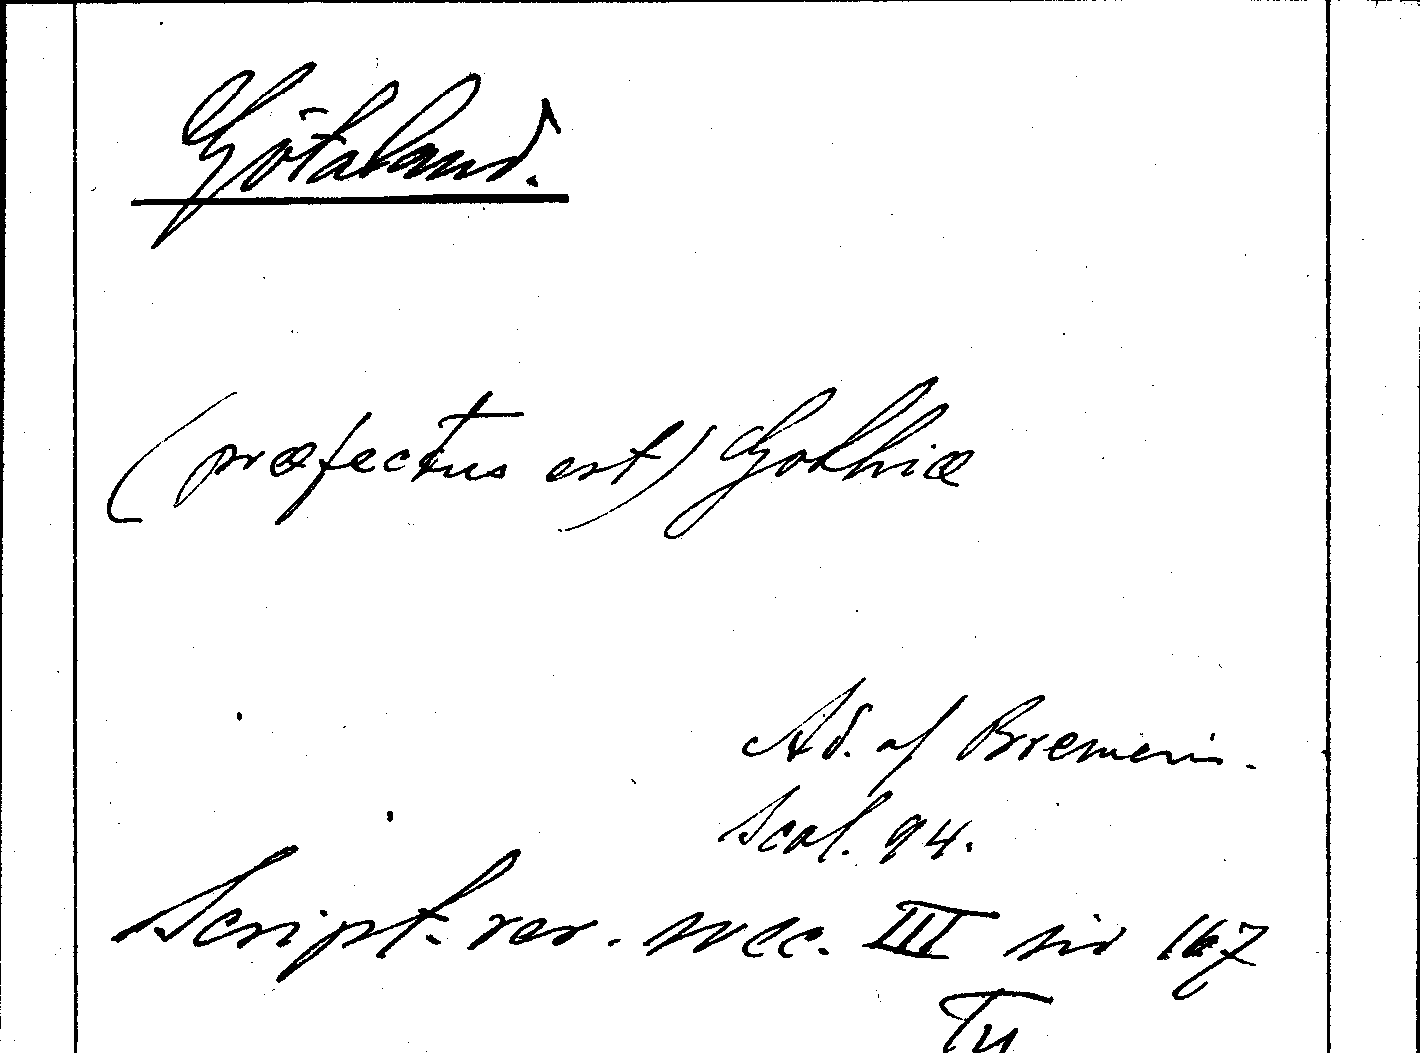 Götaland.
(præfectus est) Gothiæ
Ad. af Bremen.
Scol. 94.
Script. rer. svec. III sid 167
Ty